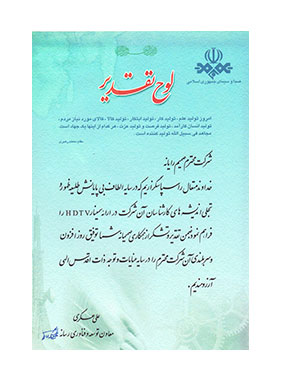 صدا و سیمای جمهوری اسلامی
لوح تقدیر
امروز تولید علم، تولید کار، تولید ابتکار، تولید کالا، کالای مورد نیاز مردم،
تولید انسان کارآمد، تولید فرصت و تولید عزت، هر کدام از اینها یک جهاد است.
مجاهد فی سبیل الله تولید کننده است.
مقام معظم رهبری
شرکت محترم مبسم رایانه
خداوند متعال را سپاسگزاریم که در سایه الطاف بی پایانش طلیعه ظهور و
تجلی اندیشه های کارشناسان آن شرکت در ارائه سمینار HDTV را
فراهم نمود ضمن تقدیر و تشکر از همکاری صمیمانه شما توفیق روز افزون
و سربلندی آن شرکت محترم را در سایه عنایات و توجه ذات اقدس الهی
آرزومندیم.
علی عسکری
معاون توسعه و فناوری رسانه